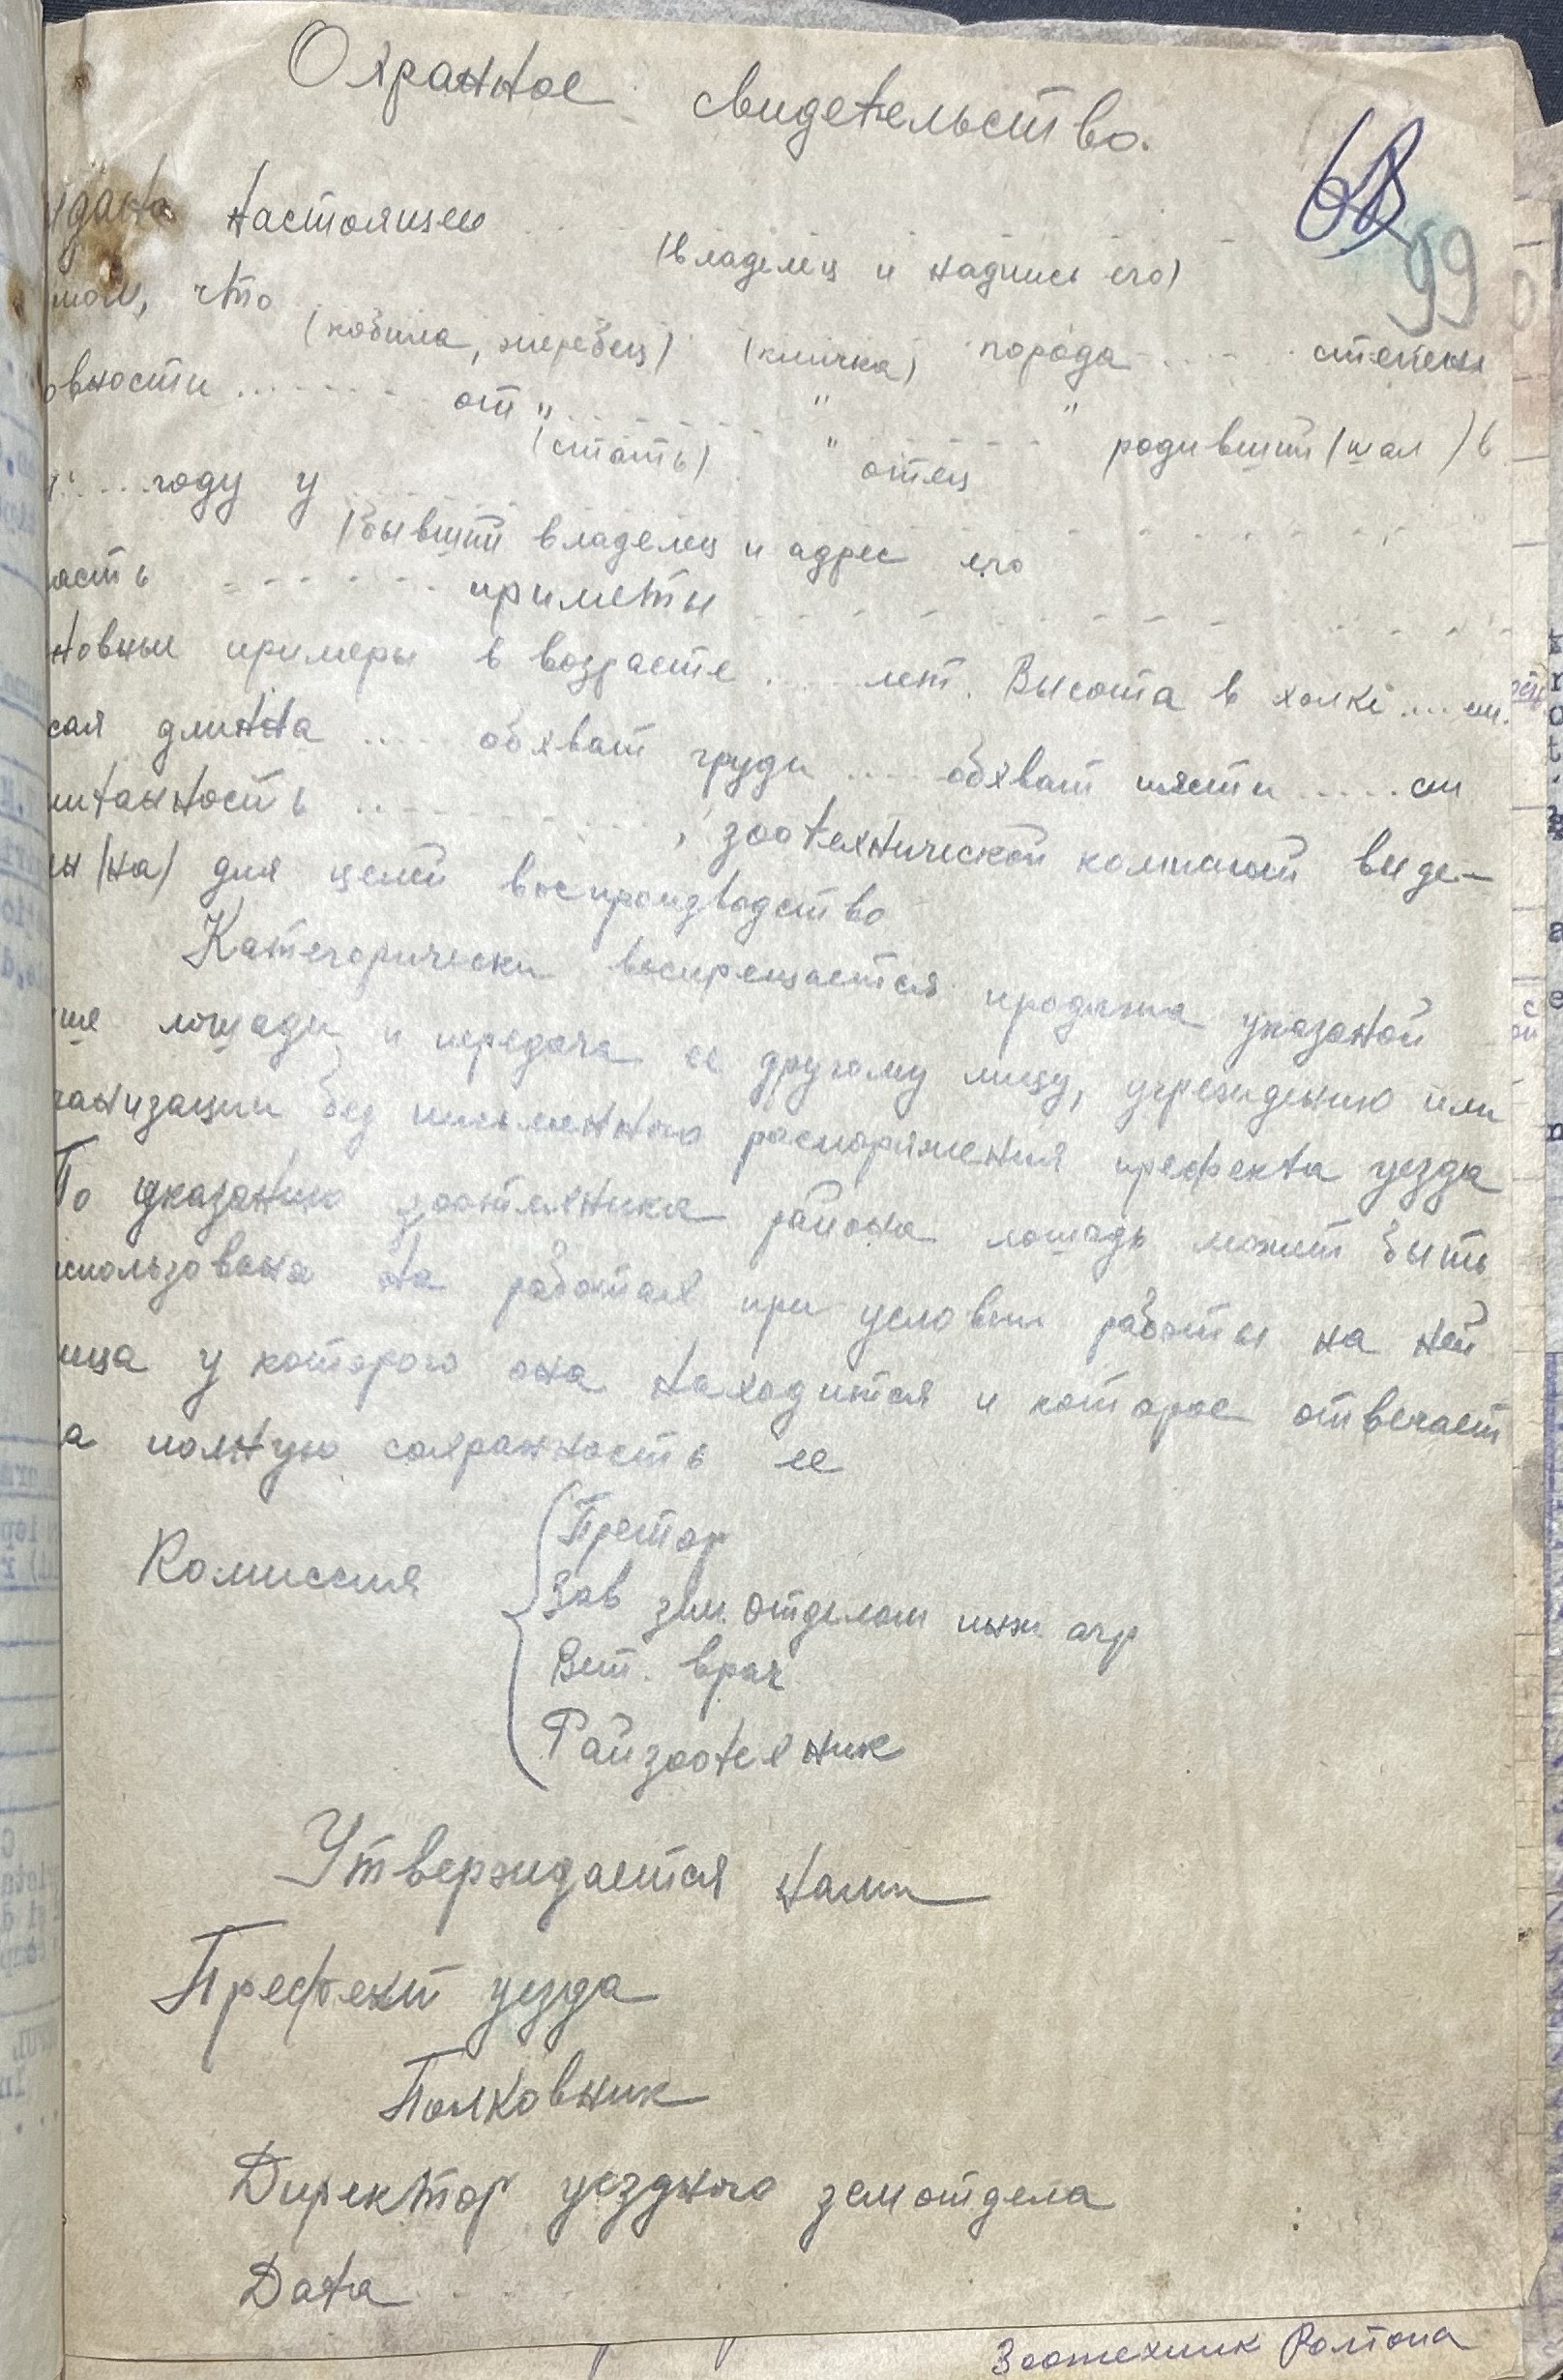 Охранное свидетельство.
68
99
дана настоящем . . . .
(владелец и надпись его)
том, что
(кобила, жеребец) (кличка) порода ..... степень
овности ......... от " ....... " ....... " родивший (шая) в
(стать) " отец
.... году у ..........
(бывший владелец и адрес его
асть ........ приметы ..........
новные примеры в возрасте .... лет. Высота в холкі .... см.
сая длинна .... обхват груди .... обхват пясти ..... см
итанность ............, зоотехнической комисией выде-
н (на) для целей воспроизводство
Категорически воспрещается продажа указаной
ше лошади и передача ее другому лицу, учреждению или
ганизации без письменного распоряжения префекта уезда
По указанию зоотехника района лошадь может быть
использована на работах при условии работы на ней
ица у которого она находится и которое отвечает
а полную сохранность ее
Комиссия
Претор
Зав зем. отделом инж. агр
Вет. врач
Райзоотехник
Утверждается нами
Префект уезда
Полковник
Директор уездного земотдела
Дата . . .
Зоотехник